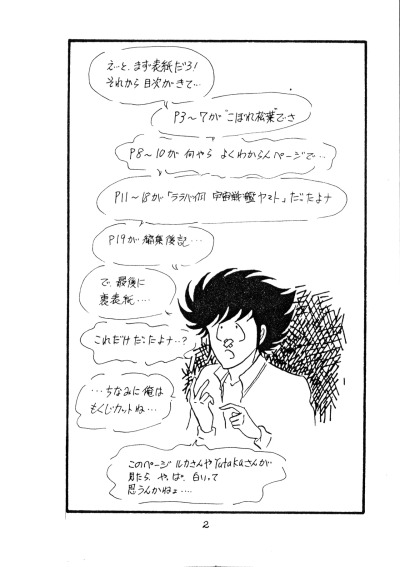 えーと、まず表紙だろ!
それから目次がきて…
P3～7が“こぼれ松葉”でさ
P8～10が何やらよくわからんページで…
P11～18が「ララバイ 宇宙戦艦ヤマト」だったよナ
P19が編集後記…
で、最後に
裏表紙…
これだけだったよナ…?
…ちなみに俺は
もくじカットね…
このページルカさんやYutakaさんが
見たら、やっぱ白いって
思うんかねェ…
2